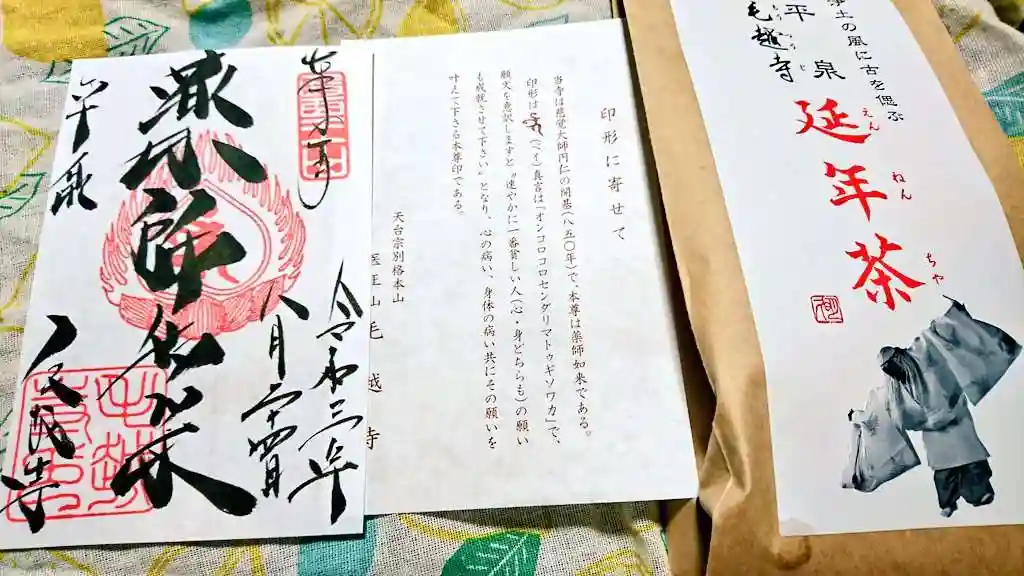 奉拝
令和三年
八月二十四日
薬師如来
平泉
毛越寺
印形に寄せて
当寺は慈覚大師円仁の開基(八五〇年)で、本尊は薬師如来である。
印形は(ベイ)真言は「オンコロコロセンダリマトゥギソワカ」で、
願文を意訳しますと"速やかに一番貧しい人(心・身どちらも)の願い
も成就させて下さい"となり、心の病い、身体の病い共にその願いを
叶えて下さる本尊印である。
天台宗別格本山
医王山毛越寺
浄土の風に古を偲ぶ
平泉
毛越寺
もうつうじ
延年茶
えんねんちゃ